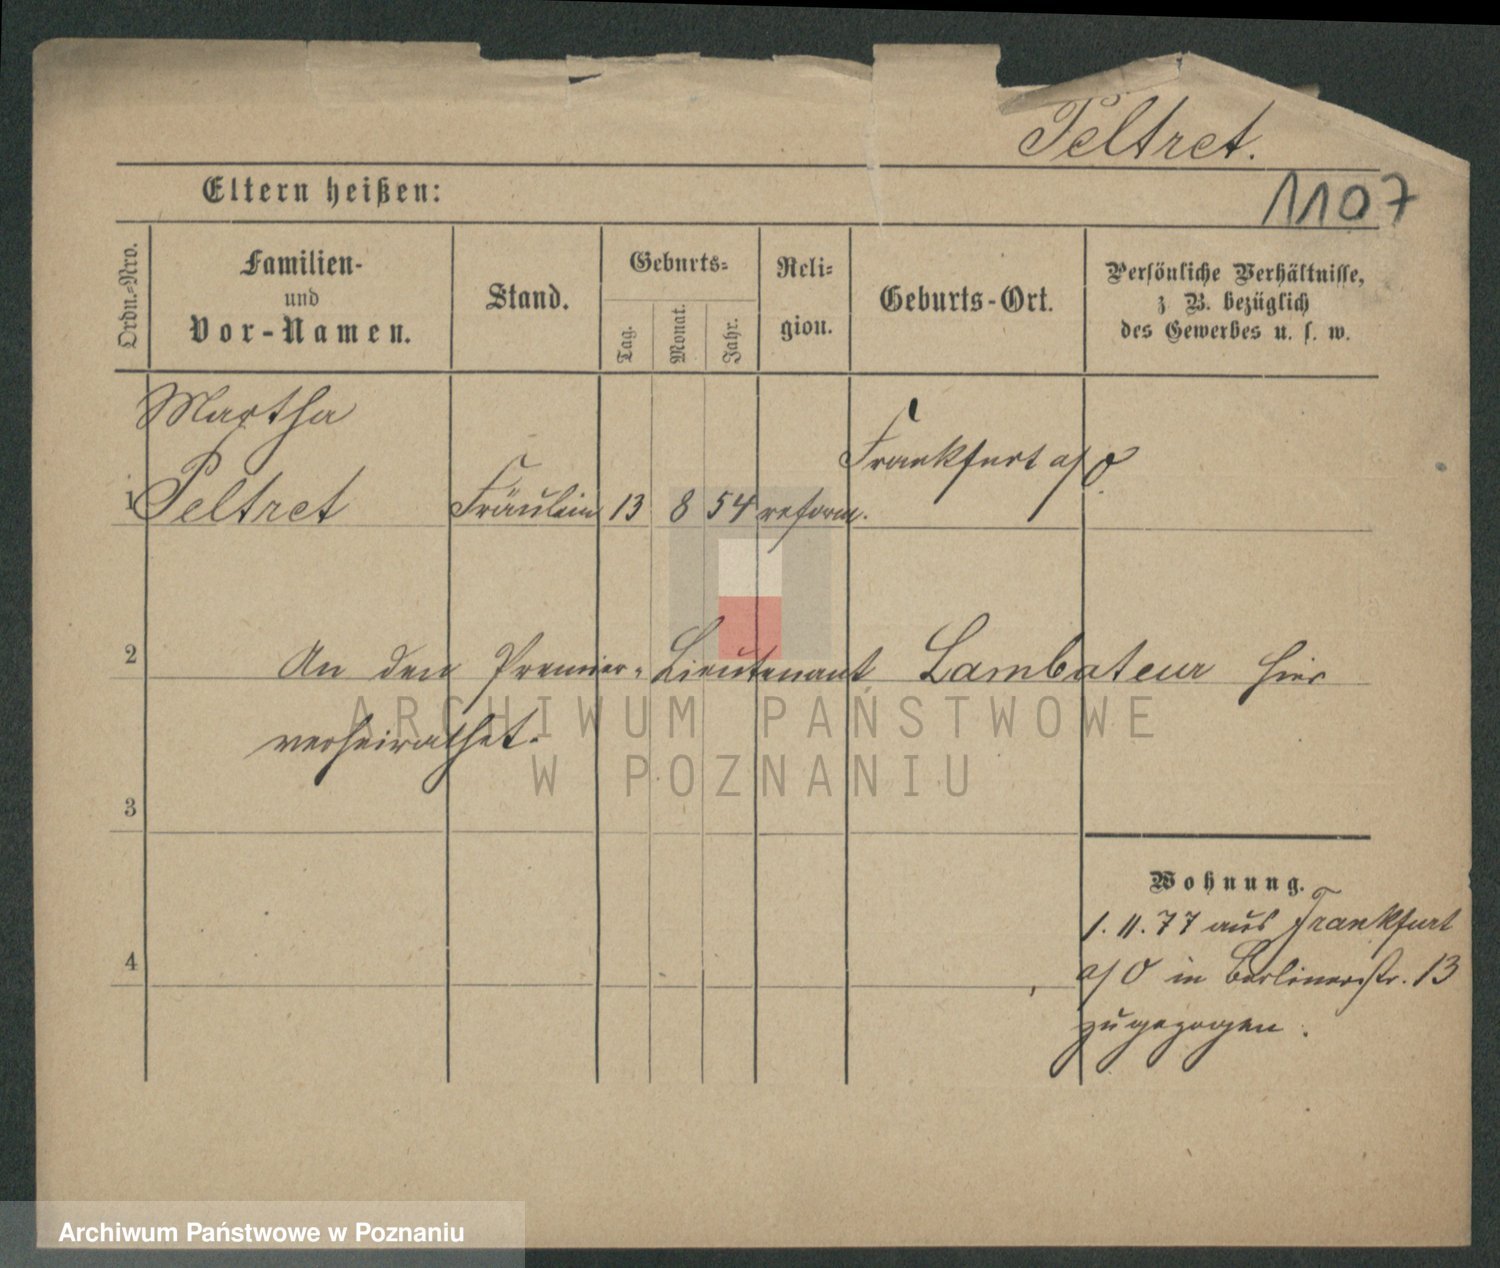 Peltret.
1107
Eltern heißen:
Ordn.-Nro.
Familien-
und
Vor-Namen.
Stand.
Geburts-
Tag.
Monat.
Jahr.
Reli-
gion.
Geburts-Ort.
Persönliche Verhältnisse,
z B. bezüglich
des Gewerbes u. s. w.
Martha
1 Peltret Fräulein 13 8 54 reform. Frankfurt a/O.
2 An den Premier-Lieutenant Lambateur hier
verheirathet.
3
4
Wohnung.
1. 11. 77 aus Frankfurt
a/O in Berlinerstr. 13
zugezogen.
ARCHIWUM PAŃSTWOWE
W POZNANIU
Archiwum Państwowe w Poznaniu